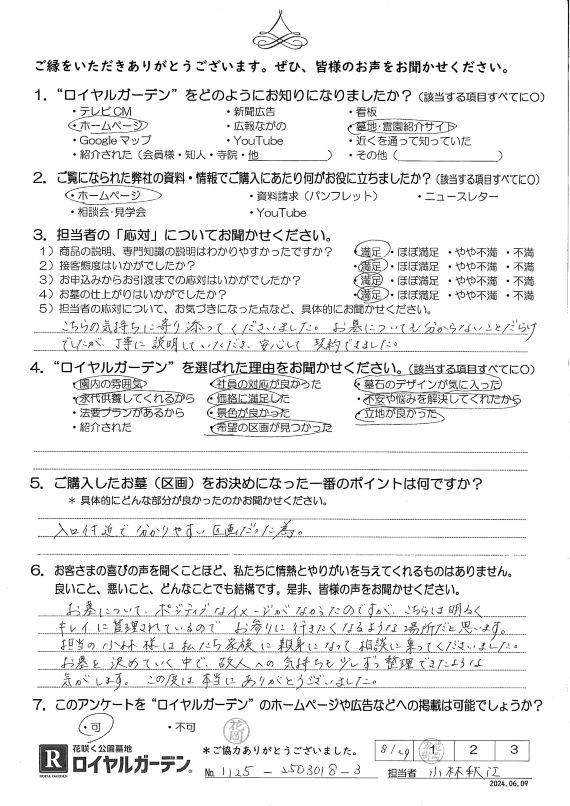 ご縁をいただきありがとうございます。ぜひ、皆様のお声をお聞かせください。
1．“ロイヤルガーデン”をどのようにお知りになりましたか？（該当する項目すべてに○）
・テレビCM ・新聞広告 ・看板
・ホームページ ・広報ながの ・墓地・霊園紹介サイト
・Googleマップ ・YouTube ・近くを通って知っていた
・紹介された（会員様・知人・寺院・他　　　） ・その他（　　　）
2．ご覧になられた弊社の資料・情報でご購入にあたり何がお役に立ちましたか？（該当する項目すべてに○）
・ホームページ ・資料請求（パンフレット） ・ニュースレター
・相談会・見学会 ・YouTube
3．担当者の「応対」についてお聞かせください。
1）商品の説明、専門知識の説明はわかりやすかったですか？ 満足・ほぼ満足・やや不満・不満
2）接客態度はいかがでしたか？ 満足・ほぼ満足・やや不満・不満
3）お申込みからお引渡までの応対はいかがでしたか？ 満足・ほぼ満足・やや不満・不満
4）お墓の仕上がりはいかがでしたか？ 満足・ほぼ満足・やや不満・不満
5）担当者の応対について、お気づきになった点など、具体的にお聞かせください。
こちらの気持ちに寄り添ってくださいました。お墓についても分からないことだらけ
でしたが、丁寧に説明していただき、安心して契約できました。
4．“ロイヤルガーデン”を選ばれた理由をお聞かせください。（該当する項目すべてに○）
・園内の雰囲気 ・社員の対応が良かった ・墓石のデザインが気に入った
・永代供養してくれるから ・価格に満足した ・不安や悩みを解決してくれたから
・法要プランがあるから ・景色が良かった ・立地が良かった
・紹介された ・希望の区画が見つかった
5．ご購入したお墓（区画）をお決めになった一番のポイントは何ですか？
＊具体的にどんな部分が良かったのかお聞かせください。
入口付近で分かりやすい区画だった為。
6．お客さまの喜びの声を聞くことほど、私たちに情熱とやりがいを与えてくれるものはありません。
良いこと、悪いこと、どんなことでも結構です。是非、皆様の声をお聞かせください。
お墓について、ポジティブなイメージがなかったのですが、こちらは明るく
キレイに管理されているのでお参りに行きたくなるような場所だと思います。
担当の小林様は私たち家族に親身になって相談に乗ってくださいました。
お墓を決めていく中で、故人への気持ちも少しずつ整理できたような
気がします。この度は本当にありがとうございました。
7．このアンケートを“ロイヤルガーデン”のホームページや広告などへの掲載は可能でしょうか？
・可 ・不可
花岡
R
ROYAL GARDEN
花咲く公園墓地
ロイヤルガーデン®
＊ご協力ありがとうございました。
No. 1125-2503018-3
8/29 1 2 3
担当者 小林秋江
2024.06.09